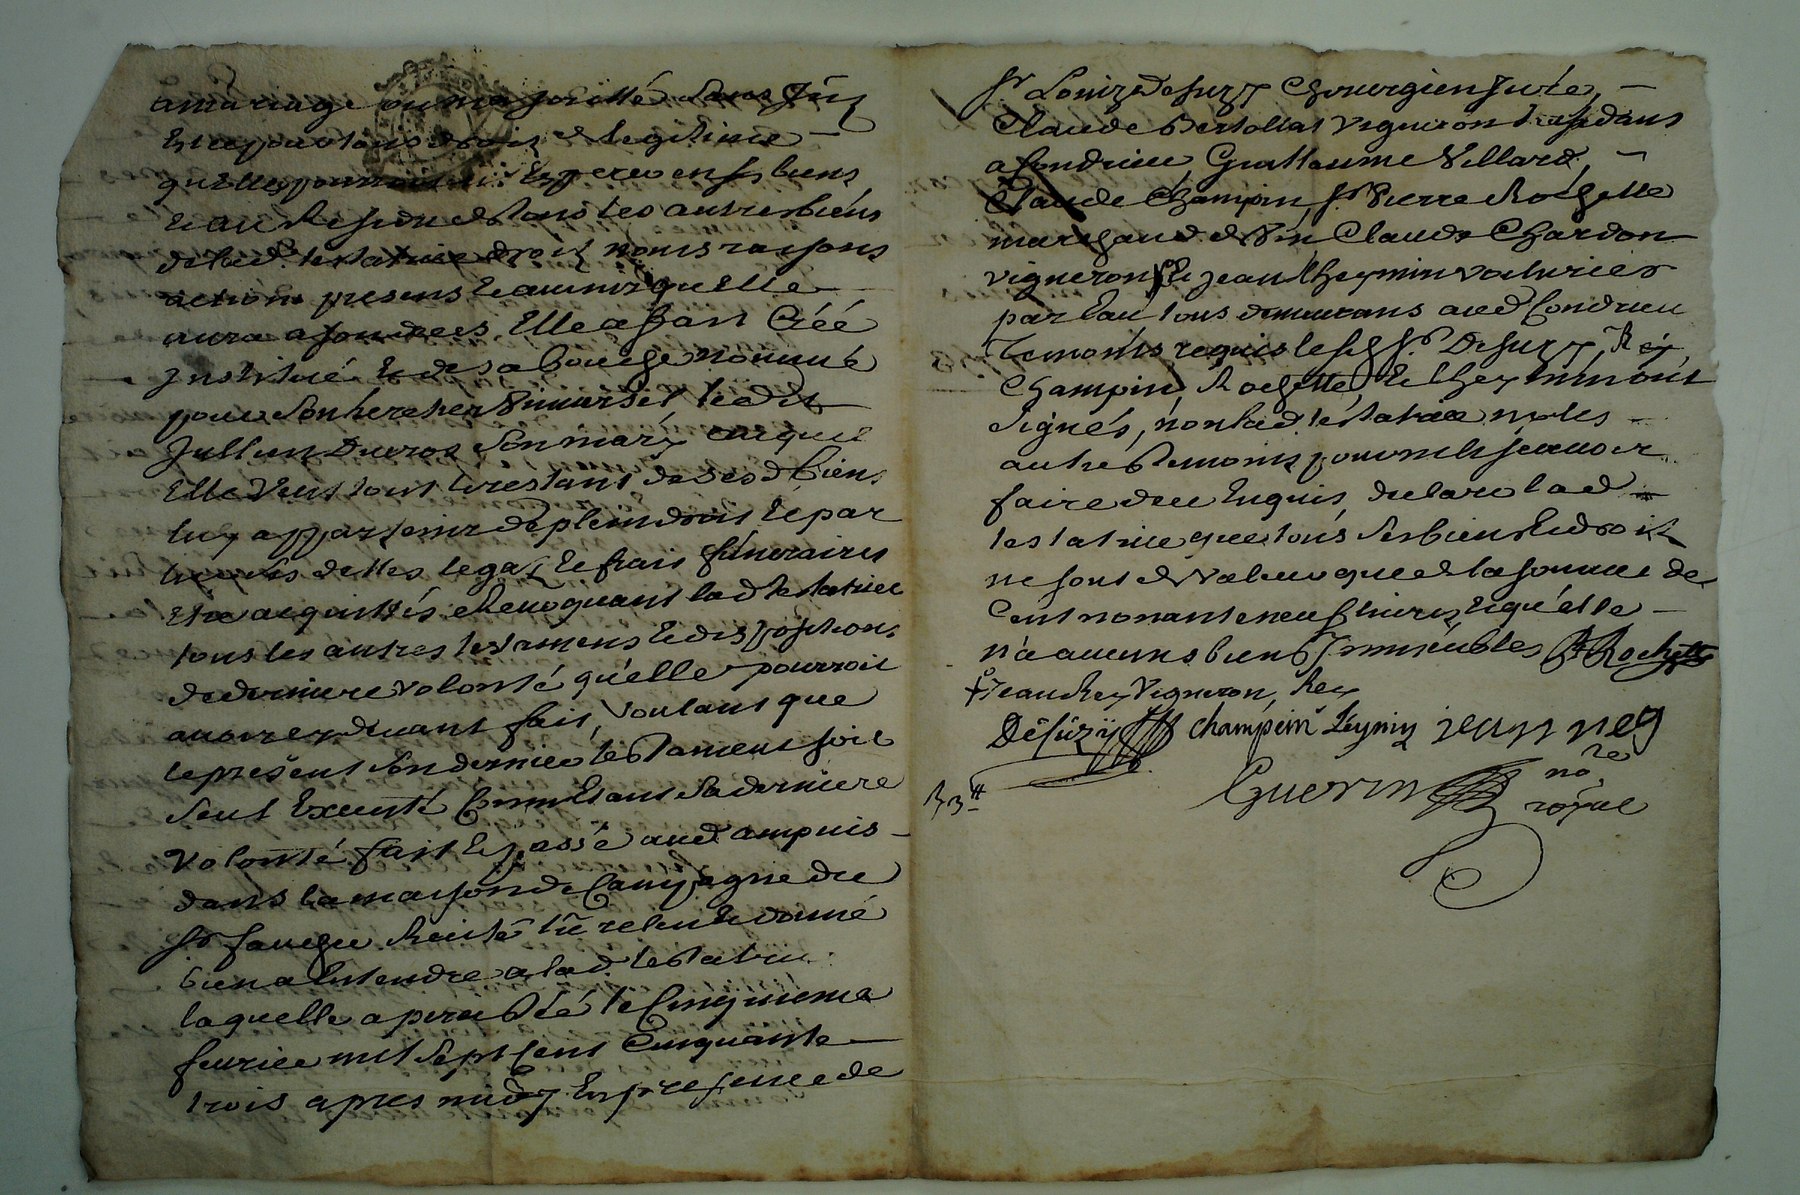 a mariage ou majorité sans
et ce pour tous droits de legitime
qu'elle pourroit esperer en ses biens
et au Residu de tous les autres biens
de lad. testatrice droits noms raisons
actions presens et auenir quelle
aura a son deces, Elle a fait Créé
institué et de sa bouche nommé
pour son heretier Vniuersel ledit
Jullien Dueros son mary auquel
Elle Veut tout le restant de sesd. biens
luy appartenir de plein droit et par
dettes legaz et frais funeraires
Etre acquittés. Reuoquant lad testatrice
tous les autres testamens et dispositions
de derniere volonté qu'elle pourroit
auoir cy deuant fait, voulant que
le present son dernier testament soit
seul Executé comme Etant sa derniere
Volonté fait et passé aud ampuis
dans la maison de Campagne du
sr. fauché Recité leu releu et donné
bien a Entendre a lad. testatrice
laquelle a persisté le Cinquieme
feurier mil sept Cent Cinquante
trois apres midy En presence de
sr. Louis Desuzy Chirurgien Juré,
Claude Bertollat vigneron
a Condrieu Guillaume Villard,
Claude Champin, sr. Pierre Rochette
marchand de vin Claude Chardon
vigneron, et jean theymin voiturier
par Eau tous demeurans aud Condrieu
temoins requis lesd sr. Desuzy, Rey,
Champin, Rochette, et theymin ont
signés, non lad. testatrice ny les
autres temoins pour ne le sçauoir
faire de ce Enquis, declaré lad
testatrice que tous ses biens et droits
ne sont de Valeur que de la somme de
Cent nonante neuf liures, et qu'elle
n'a aucuns biens Immeubles P Rochette
+ jean Rey Vigneron, Rey
Desuzy champein Teymin jean reg
Guerin nore
royal